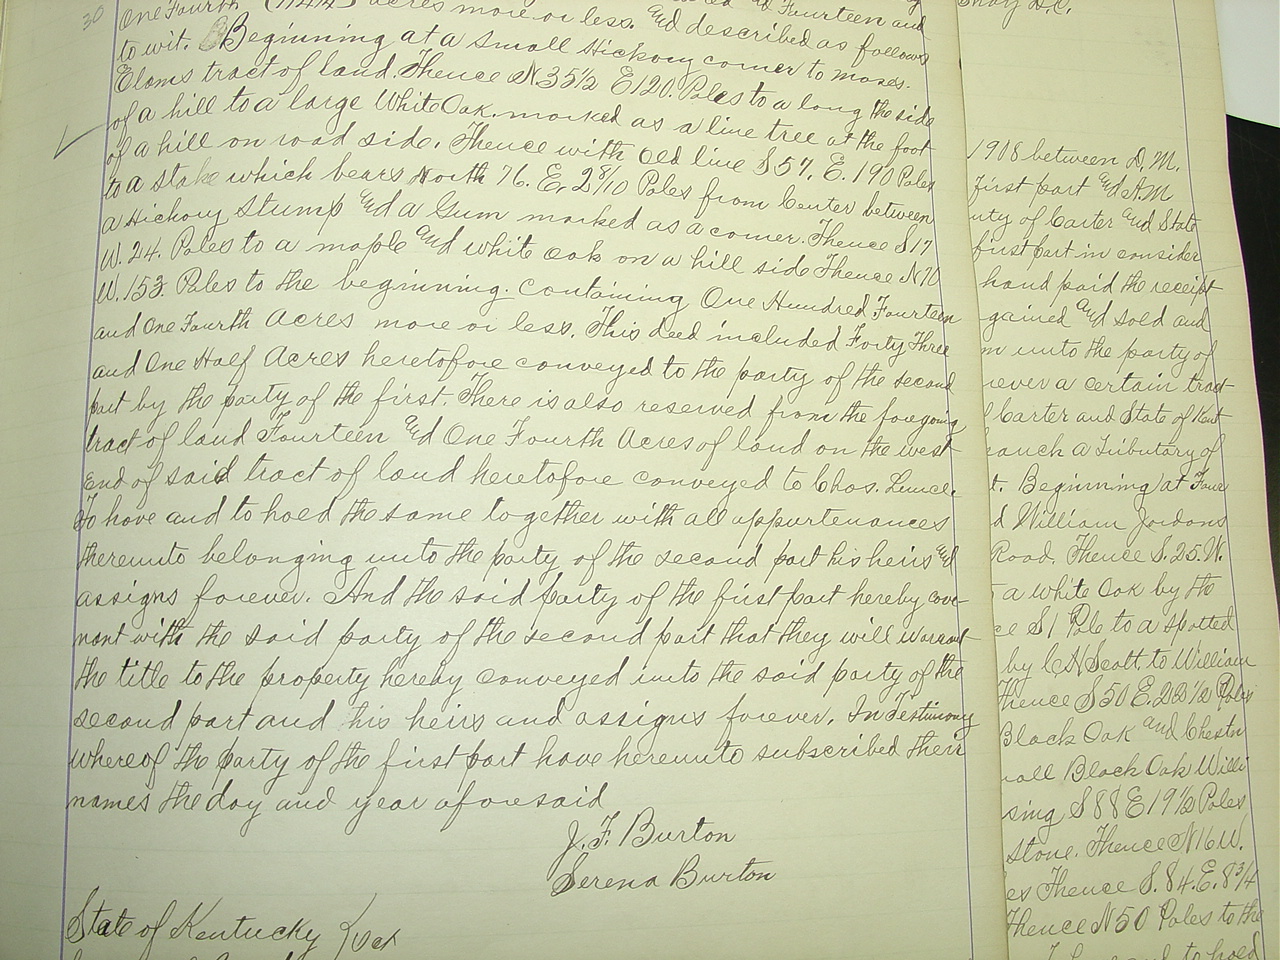 30
One Fourth (114 1/4) acres more or less. and described as follows
to wit. Beginning at a small Hickory corner to Moses.
Elams tract of land. Thence N. 35 1/2 E 120. Poles to a long the side
of a hill to a large White Oak. marked as a line tree at the foot
of a hill on road side. Thence with old line S 57. E. 190 Poles
to a stake which bears North 76. E. 2 8/10 Poles from Center between
a Hickory Stump and a Gum marked as a corner. Thence S 17
W. 24. Poles to a maple and white oak on a hill side Thence N 70
W. 153. Poles to the beginning. containing One Hundred Fourteen
and One Fourth Acres more or less. This deed included Forty Three
and One Half Acres heretofore conveyed to the party of the second
part by the party of the first. There is also reserved from the foregoing
tract of land Fourteen and One Fourth Acres of land on the west
End of said tract of land heretofore conveyed to Chas.
To have and to hoed the same together with all appurtenances
thereunto belonging unto the party of the second part his heirs and
assigns forever. And the said party of the first part hereby cove-
nant with the said party of the second part that they will warrant
the title to the property hereby conveyed unto the said party of the
second part and his heirs and assigns forever. In Testimony
whereof the party of the first part have hereunto subscribed their
names the day and year aforesaid
J. F. Burton
Serena Burton
State of Kentucky
1908 between D. M.
first part and
nty of Carter and State
first part in consider
hand paid the receipt
gained and sold and
m unto the party of
rever a certain tract
Carter and State of Kent
ranch a Tributary of
t. Beginning at Four
d William Jordans
Road. Thence S. 25. W.
a white Oak by the
ce S 1 Pole to a spotted
by C H Scott to William
Thence S 50 E. 22 1/2 Poles
Black Oak and Chestn
mall Black Oak Willi
sing S 88 E 19 1/2 Poles
stone. Thence N 16 W.
es Thence S. 84. E. 8 3/4
Thence N 50 Poles to the
to hoed